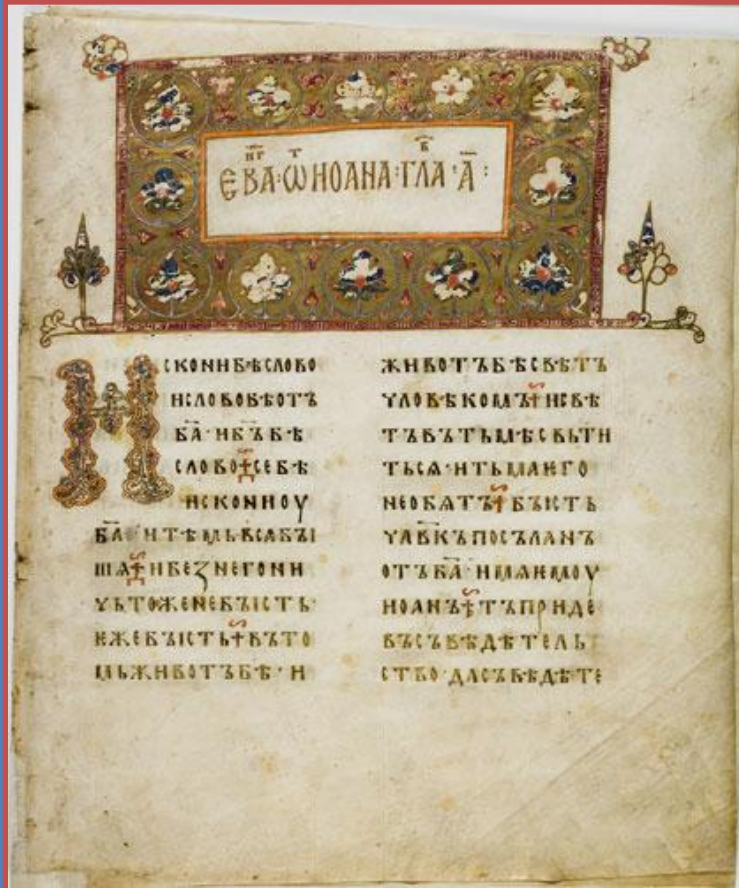 ЕВА҃НГ · Ѡ҃Т ИОАНА : ГЛА҃В · А҃ :
ИСКОНИБѢСЛОВО
ИСЛОВОБѢОТЪ
БА҃ · ИБЪ҃БѢ
СЛОВО СЕБѢ
ИСКОНИОУ
БА҃ · ИТѢМЬВСАБЪІ
ШѦ ИБЕЗНЕГОНИ
ЧЬТОЖЕНЕБЪІСТЬ ·
ЕЖЕБЪІСТЬ ВЪТО
МЬЖИВОТЪБѢ · И
ЖИВОТЪБѢСВѢТЪ
ЧЛОВѢКОМЪ ИСВѢ
ТЪВЪТЬМѢСВЬТИ
ТЬСѦ · ИТЬМАѤГО
НЕОБѦТЪ БЪІСТЬ
ЧЛВ҃КЪПОСЪЛАНЪ
ОТЪБА҃ · ИМѦѤМОУ
ИОАНЪ ТЪПРИДЕ
ВЪСЪВѢДѢТЕЛЬ
СТВО · ДАСЪВѢДѢТЕ